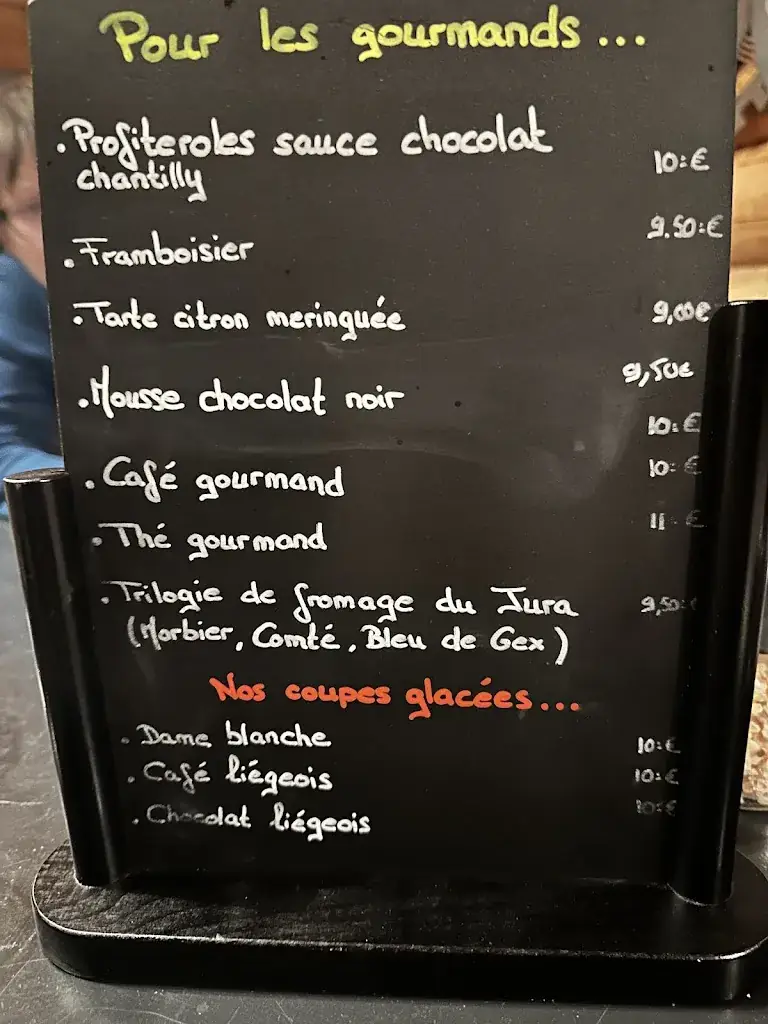 Pour les gourmands...
. Profiteroles sauce chocolat
chantilly 10:€
9.50:€
. Framboisier
. Tarte citron meringuée 9,00€
9,50€
. Mousse chocolat noir
10:€
. Café gourmand 10:€
. Thé gourmand 11-€
. Trilogie de fromage du Jura 9,50:€
(Morbier, Comté, Bleu de Gex)
Nos coupes glacées...
. Dame blanche 10:€
. Café liégeois 10:€
. Chocolat liégeois 10:€